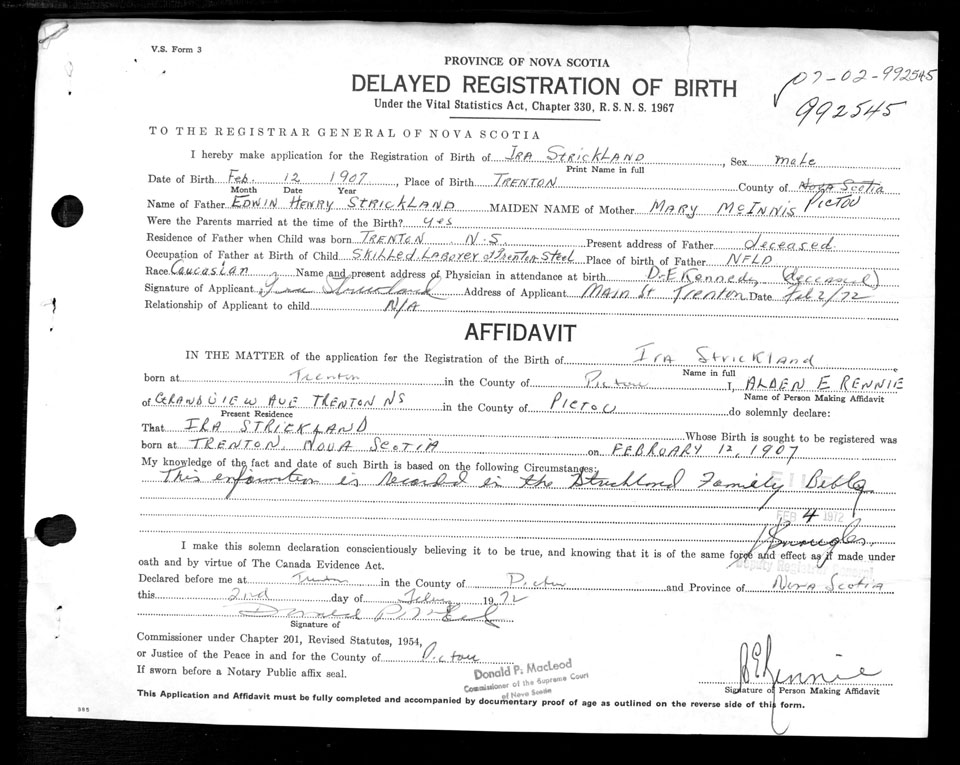 V.S. Form 3
PROVINCE OF NOVA SCOTIA
DELAYED REGISTRATION OF BIRTH
Under the Vital Statistics Act, Chapter 330, R.S.N.S. 1967
07-02-992545
992545
TO THE REGISTRAR GENERAL OF NOVA SCOTIA
I hereby make application for the Registration of Birth of IRA STRICKLAND, Sex male
Print Name in full
Date of Birth Feb. 12 1907, Place of Birth TRENTON County of Nova Scotia
Month Date Year
PICTOU
Name of Father EDWIN HENRY STRICKLAND MAIDEN NAME of Mother MARY McINNIS
Were the Parents married at the time of the Birth? yes
Residence of Father when Child was born TRENTON N.S. Present address of Father deceased
Occupation of Father at Birth of Child SKILLED LABORER Trenton Steel Place of birth of Father NFLD
Race Caucasian Name and present address of Physician in attendance at birth D.E Kennedy (deceased)
Signature of Applicant Ira Strickland Address of Applicant MAIN St Trenton Date Feb 2/72
Relationship of Applicant to child N/A
AFFIDAVIT
IN THE MATTER of the application for the Registration of the Birth of Ira Strickland
Name in full
born at Trenton in the County of Pictou I, ALDEN E RENNIE
Name of Person Making Affidavit
of GRANDVIEW AVE TRENTON NS in the County of PICTOU do solemnly declare:
Present Residence
That IRA STRICKLAND Whose Birth is sought to be registered was
born at TRENTON, NOVA SCOTIA on FEBRUARY 12, 1907
My knowledge of the fact and date of such Birth is based on the following Circumstances:
This information is recorded in the Strickland Family Bible
FEB 4 1972
Deputy Registrar General
I make this solemn declaration conscientiously believing it to be true, and knowing that it is of the same force and effect as if made under
oath and by virtue of The Canada Evidence Act.
Declared before me at Trenton in the County of Pictou and Province of Nova Scotia
this 2nd day of Feby 1972
Signature of
Commissioner under Chapter 201, Revised Statutes, 1954,
or Justice of the Peace in and for the County of Pictou
If sworn before a Notary Public affix seal.
Donald P. MacLeod
Commissioner of the Supreme Court
of Nova Scotia
A E Rennie
Signature of Person Making Affidavit
This Application and Affidavit must be fully completed and accompanied by documentary proof of age as outlined on the reverse side of this form.
385